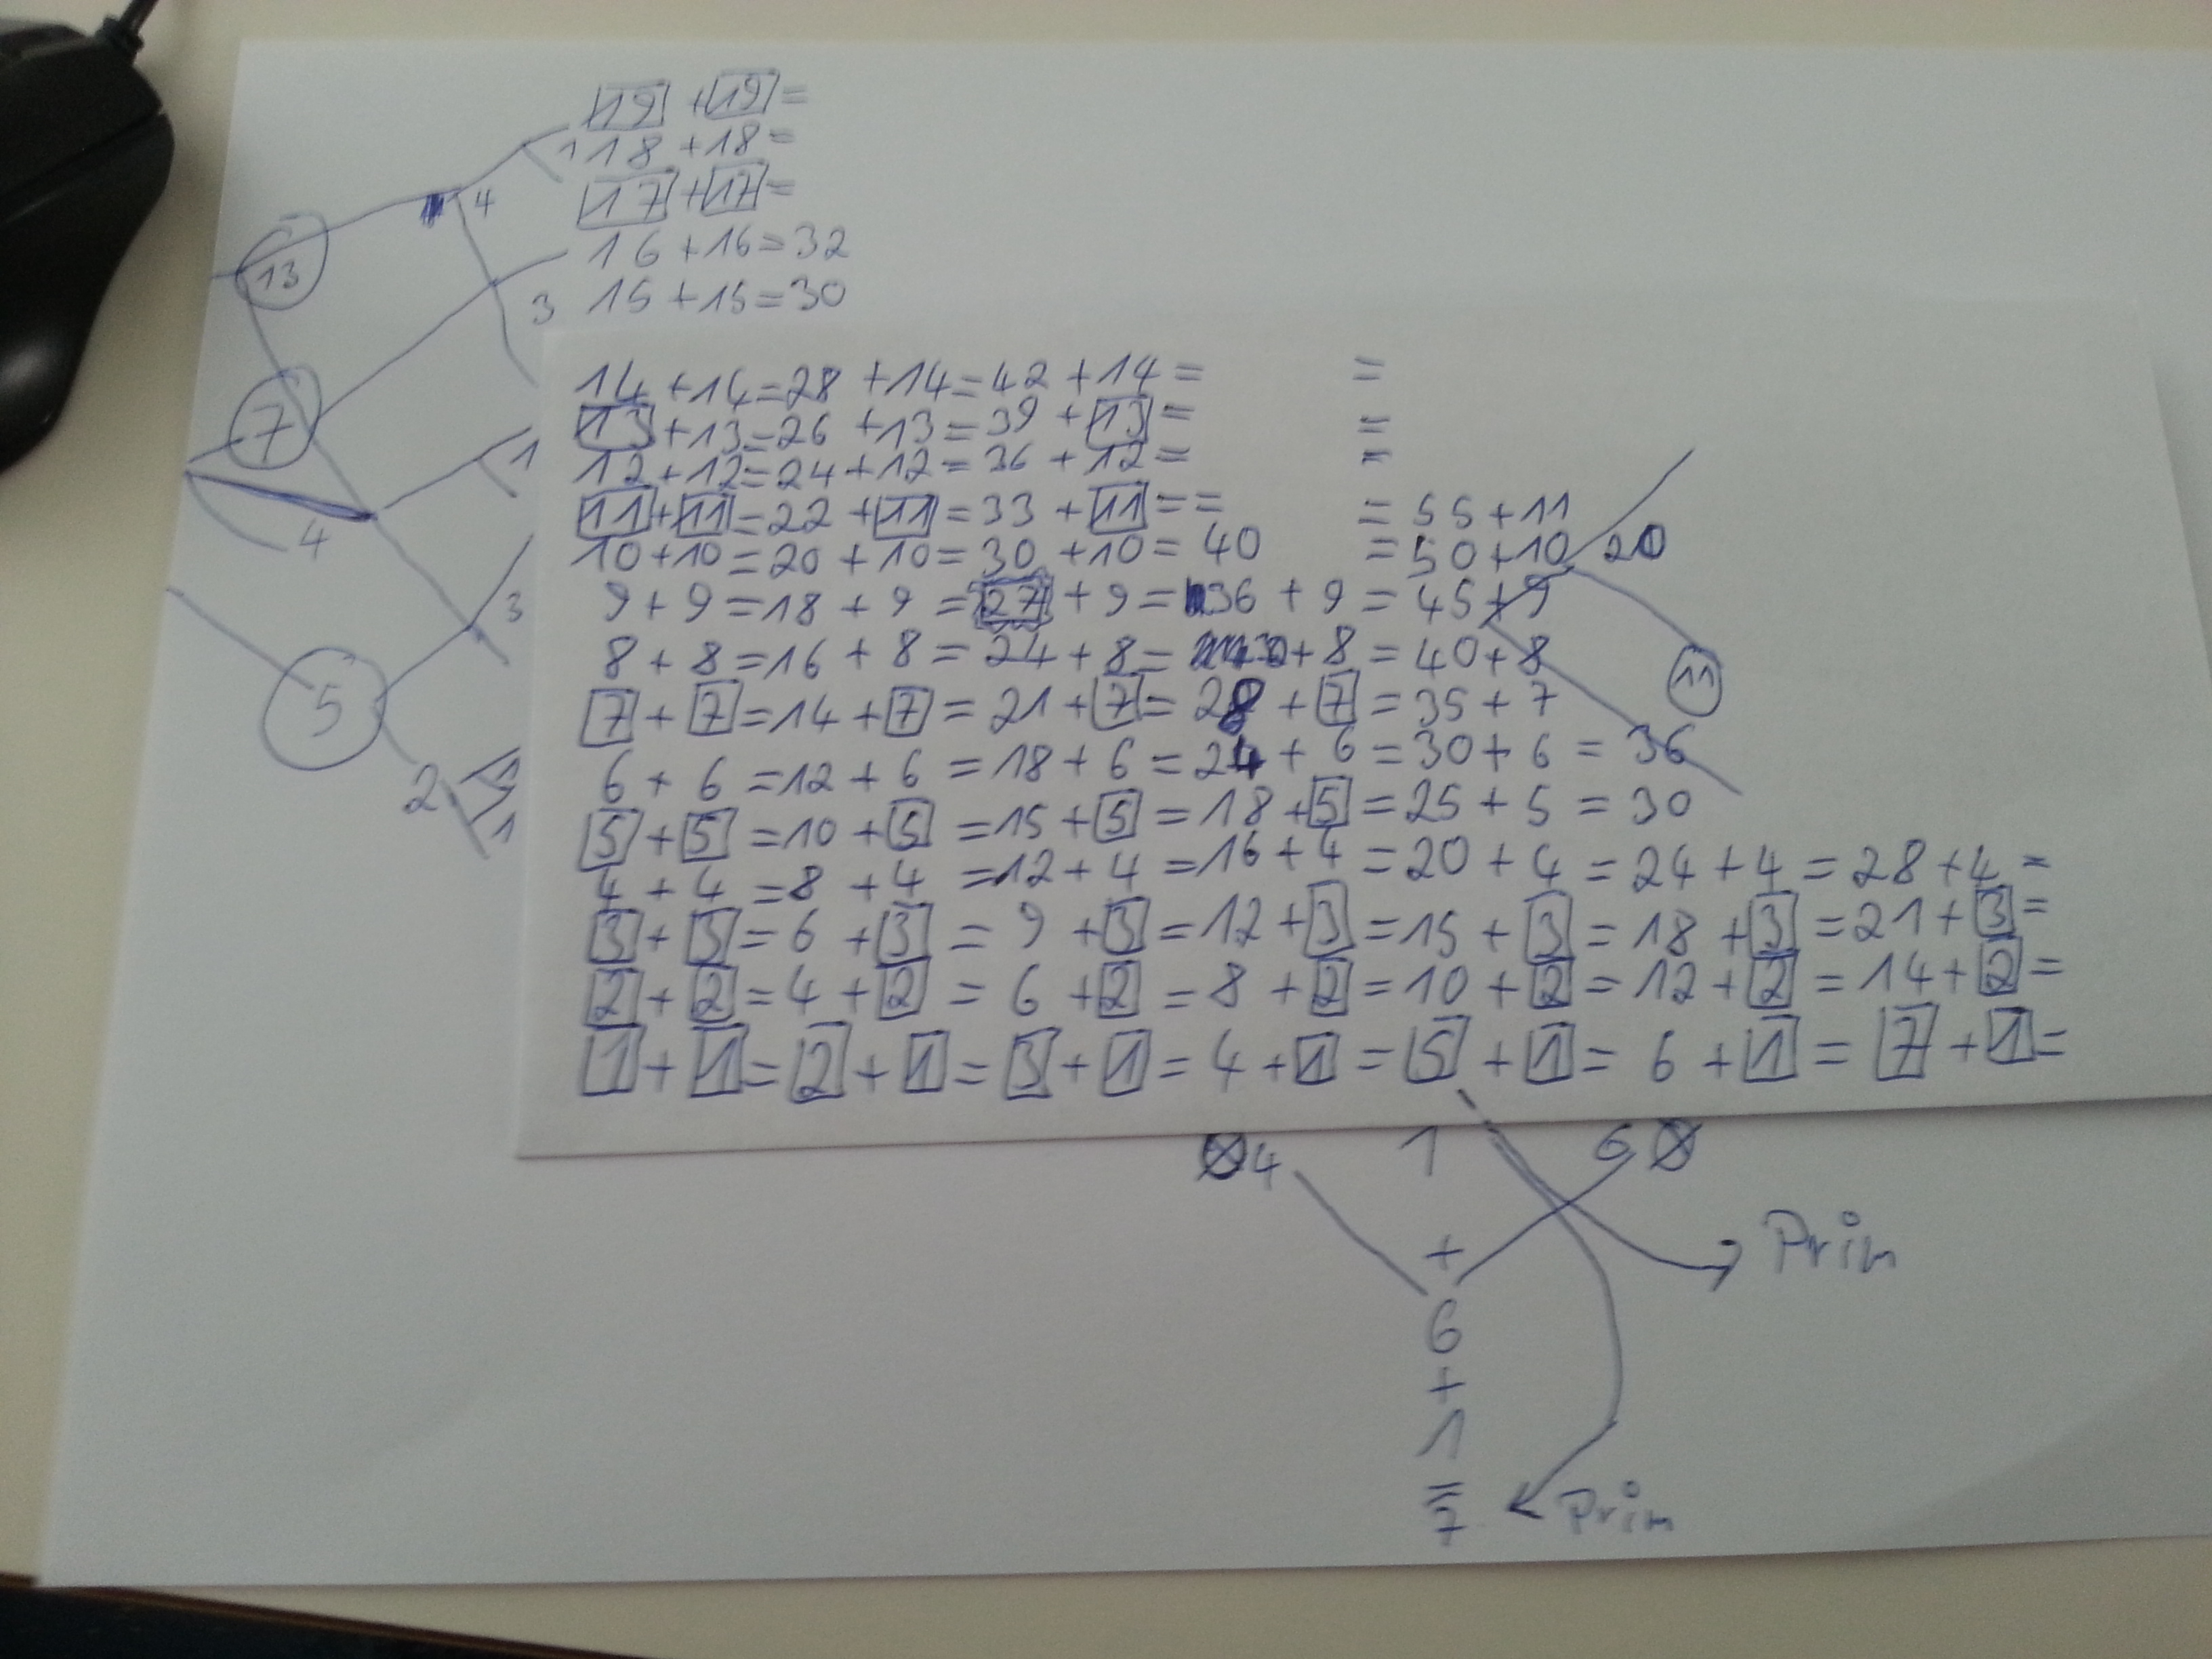 19 + 19 =
1 18 + 18 =
4 17 + 17 =
16 + 16 = 32
13
3 15 + 15 = 30
14 + 14 = 28 + 14 = 42 + 14 = =
13 + 13 = 26 + 13 = 39 + 13 = =
7
12 + 12 = 24 + 12 = 36 + 12 = =
1
11 + 11 = 22 + 11 = 33 + 11 = = = 55 + 11
4
10 + 10 = 20 + 10 = 30 + 10 = 40 = 50 + 10 20
3
9 + 9 = 18 + 9 = 27 + 9 = 36 + 9 = 45 + 9
8 + 8 = 16 + 8 = 24 + 8 = + 8 = 40 + 8
11
5
7 + 7 = 14 + 7 = 21 + 7 = 28 + 7 = 35 + 7
6 + 6 = 12 + 6 = 18 + 6 = 24 + 6 = 30 + 6 = 36
2 1
1
5 + 5 = 10 + 5 = 15 + 5 = 18 + 5 = 25 + 5 = 30
4 + 4 = 8 + 4 = 12 + 4 = 16 + 4 = 20 + 4 = 24 + 4 = 28 + 4 =
3 + 3 = 6 + 3 = 9 + 3 = 12 + 3 = 15 + 3 = 18 + 3 = 21 + 3 =
2 + 2 = 4 + 2 = 6 + 2 = 8 + 2 = 10 + 2 = 12 + 2 = 14 + 2 =
1 + 1 = 2 + 1 = 3 + 1 = 4 + 1 = 5 + 1 = 6 + 1 = 7 + 1 =
4 1 6
+ Prim
6
+
1
=
7 Prim